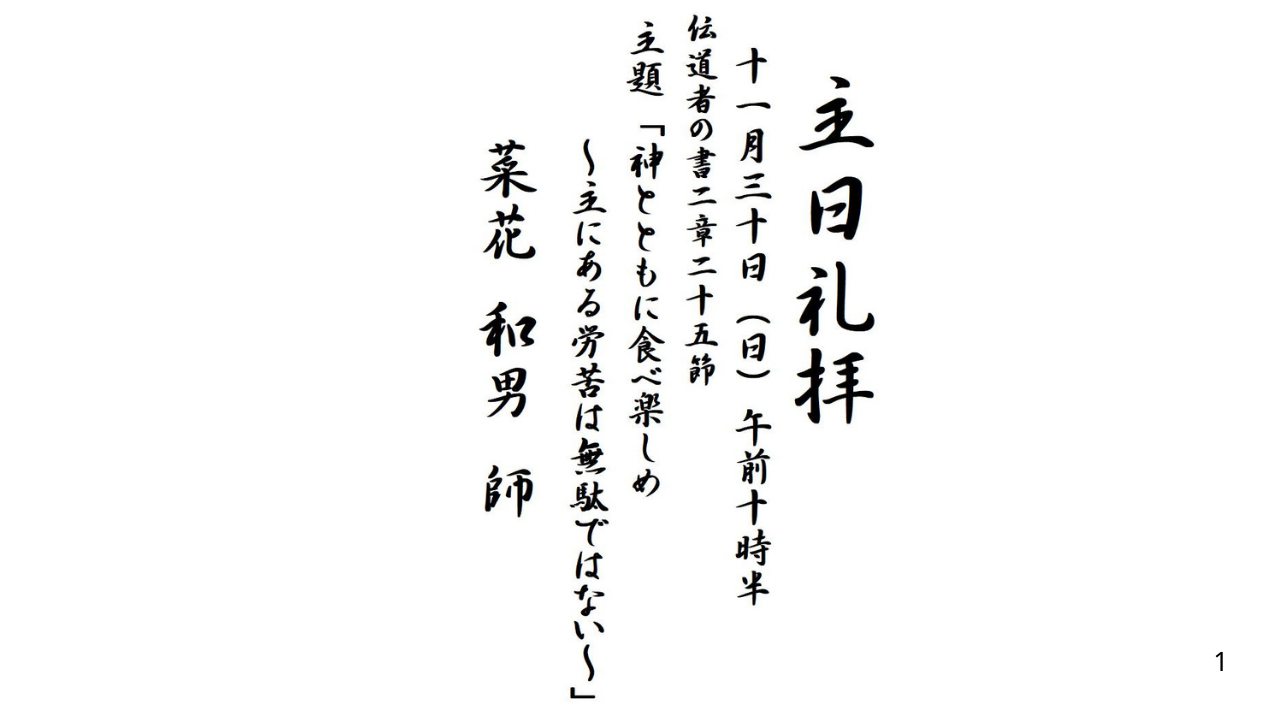 主日礼拝
十一月三十日（日）　午前十時半
伝道者の書二章二十五節
主題　「神とともに食べ楽しめ
～主にある労苦は無駄ではない～」
菜花　和男　師
1